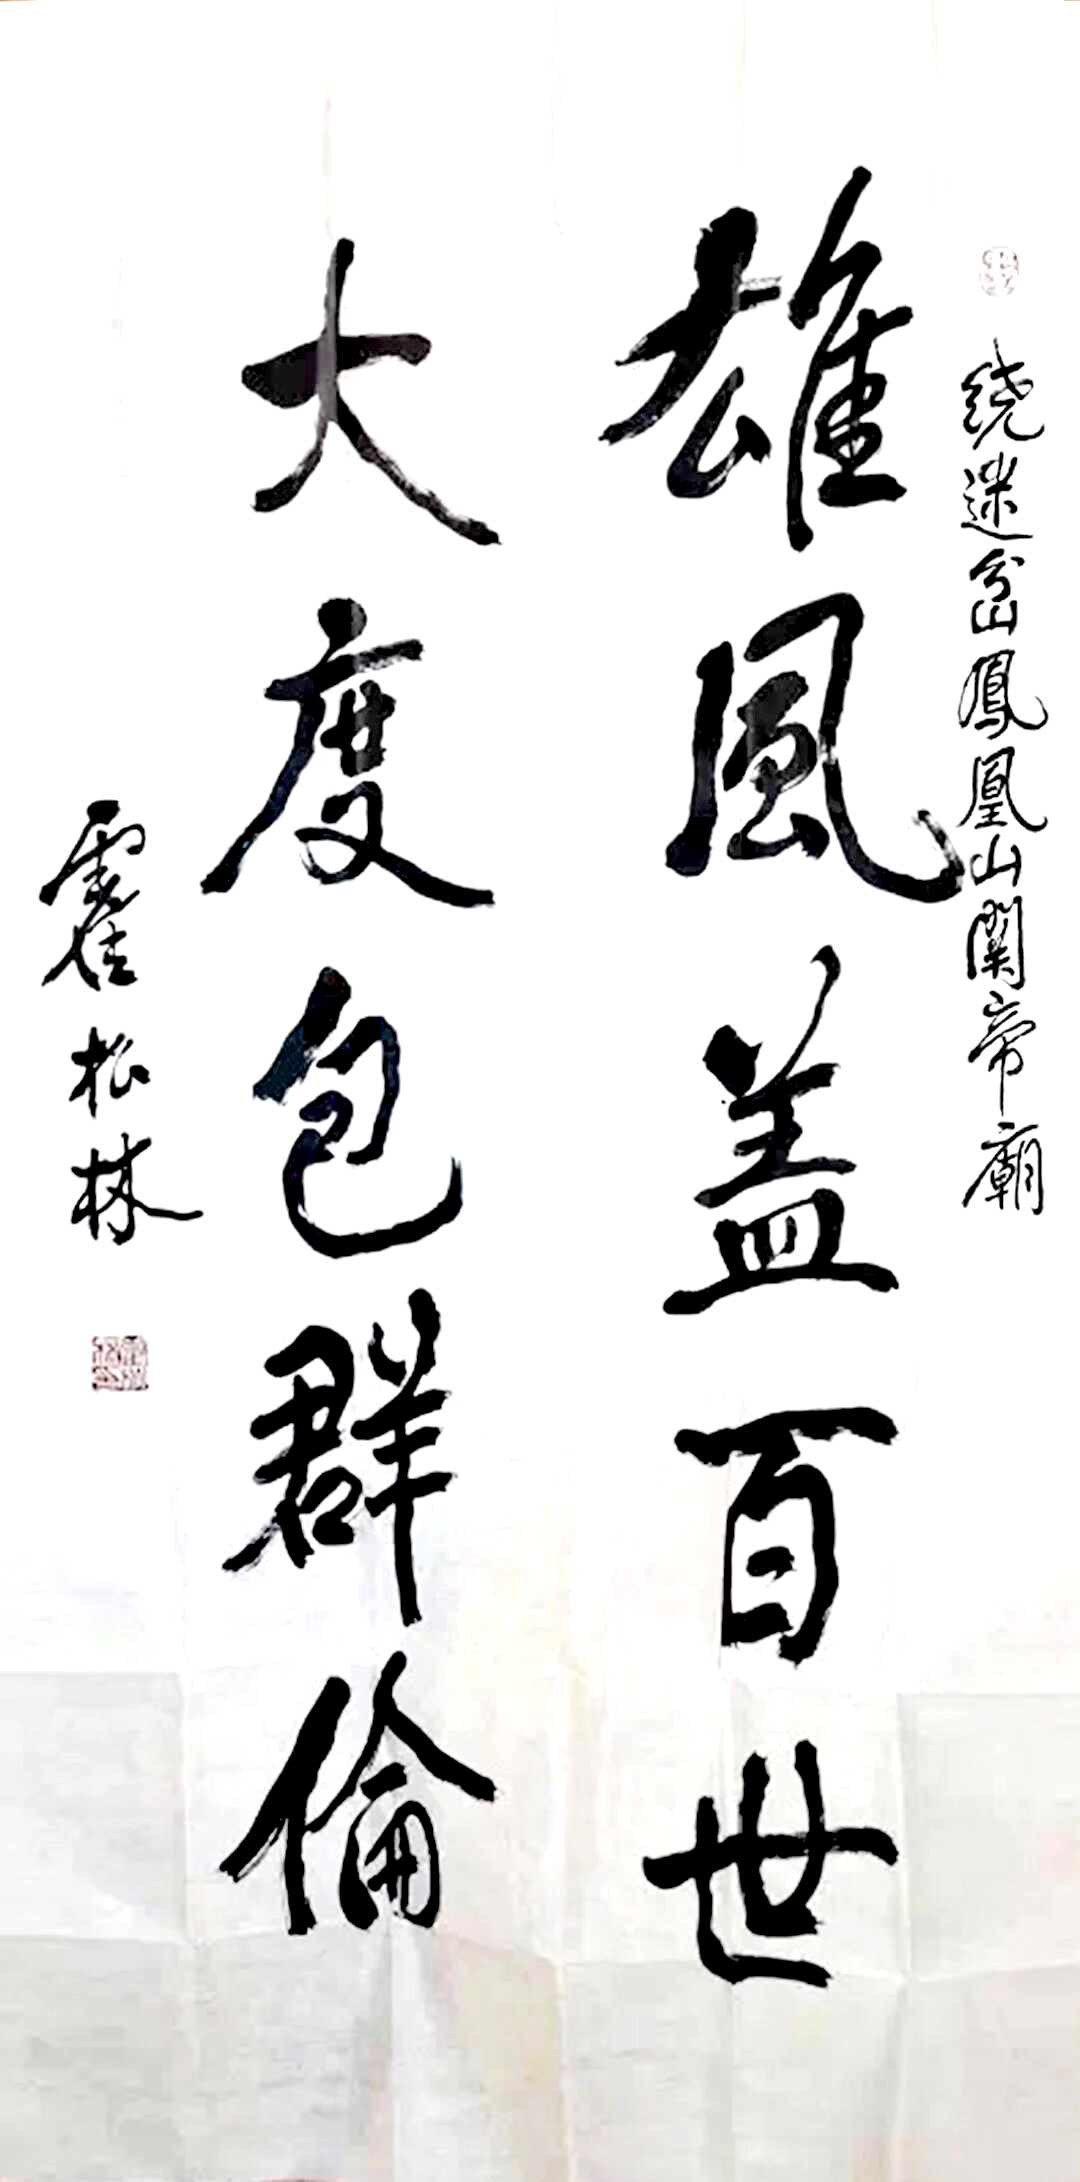 绕迷岔鳳凰山関帝廟
雄風盖百世
大度包群倫
霍松林